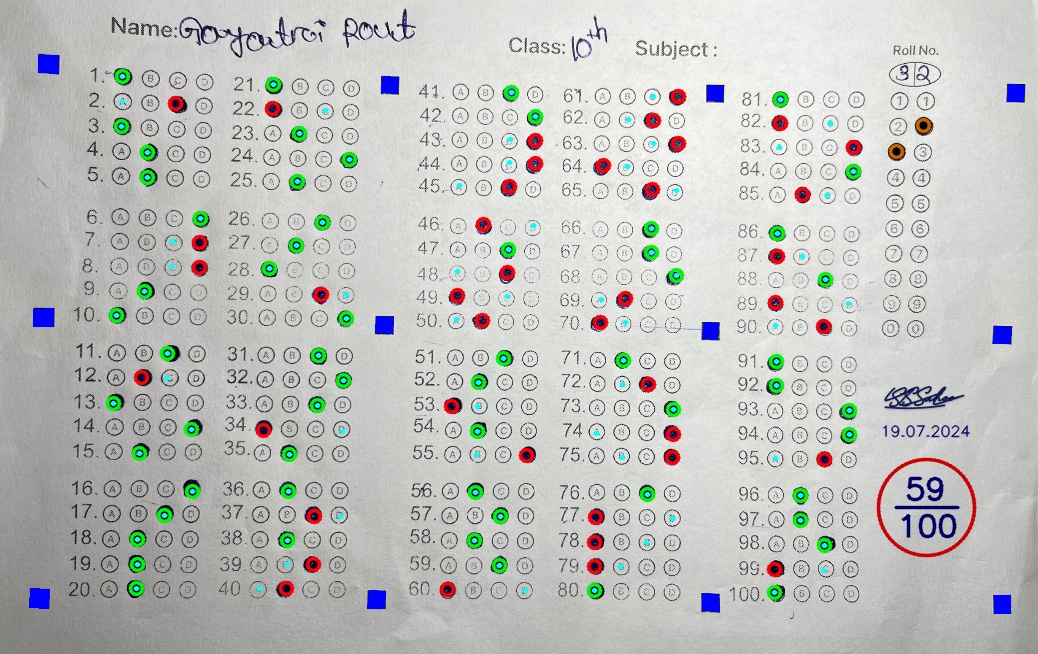 Name: Gayatri Rout
Class: 10th Subject :
Roll No.
3 2
1. B C D
2. B D
3. B C D
4. A C D
5. A C D
6. A B C
7. A B
8. A B
9. A C D
10. B C D
11. A B D
12. A D
13. B C D
14. A B C
15. A C D
16. A B C
17. A B D
18. A C D
19. A C D
20. A C D
21. B C D
22. B D
23. A C D
24. A B C
25. A C D
26. A B D
27. A C D
28. B C D
29. A B
30. A B C
31. A B D
32. A B C
33. A B D
34. B C
35. A C D
36. A C D
37. A B
38. A C D
39 A D
40. C D
41. A B D
42. A B C
43. A B
44. A B
45. B D
46. A C
47. A B D
48. B D
49. B D
50. A D
51. A B D
52. A C D
53. C D
54. A C D
55. A C
56. A C D
57. A B D
58. A C D
59. A B D
60. B C
61. A B
62. A D
63. A B
64. C D
65. A B
66. A B D
67. A B D
68. A B C
69. C D
70. C D
71. A C D
72. A D
73. A B C
74 B C
75. A C
76. A B D
77. B C
78. B D
79. C D
80. B C D
81. B C D
82. B D
83. B C
84. A B C
85. A D
86. B C D
87. C D
88. A B D
89. B C
90. B D
91. B C D
92. B C D
93. A B C
94. A B C
95. B D
96. A C D
97. A C D
98. A B D
99. B D
100. B C D
1 1
2
3
4 4
5 5
6 6
7 7
8 8
9 9
0 0
19.07.2024
59
100